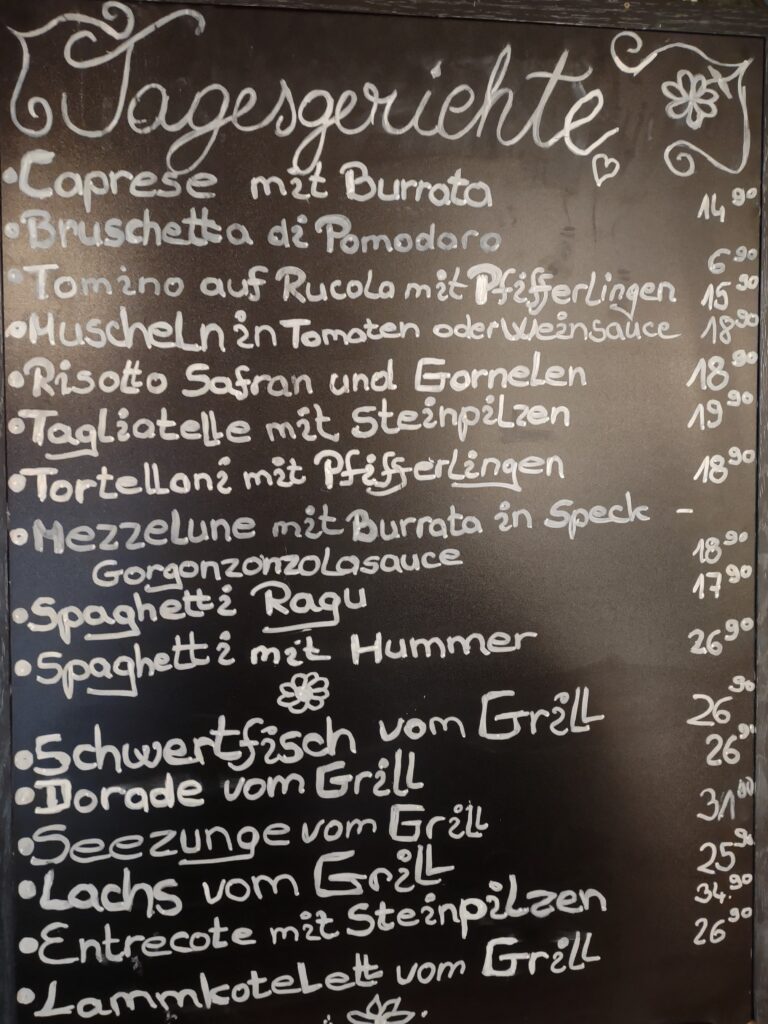 Tagesgerichte
•Caprese mit Burrata 14 90
•Bruschetta di Pomodoro 6 90
•Tomino auf Rucola mit Pfifferlingen 15 90
•Muscheln in Tomaten oder Weinsauce 18 90
•Risotto Safran und Gornelen 18 90
•Tagliatelle mit Steinpilzen 19 90
•Tortelloni mit Pfifferlingen 18 90
•Mezzelune mit Burrata in Speck -
Gorgonzonzolasauce 18 90
•Spaghetti Ragu 17 90
•Spaghetti mit Hummer 26 90
•Schwertfisch vom Grill 26 90
•Dorade vom Grill 26 90
•Seezunge vom Grill 31 90
•Lachs vom Grill 25 90
•Entrecote mit Steinpilzen 34.90
•Lammkotelett vom Grill 26 90